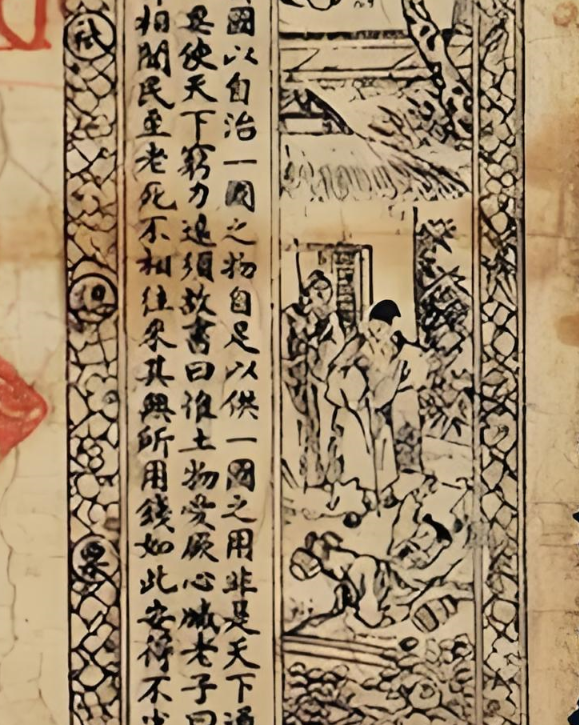 國以自治一國之物自足以供一國之用非是天下通
異使天下窮力遠須故書曰惟土物愛厥心臧老子曰
相聞民至老死不相往來其所用錢如此安得不少
票